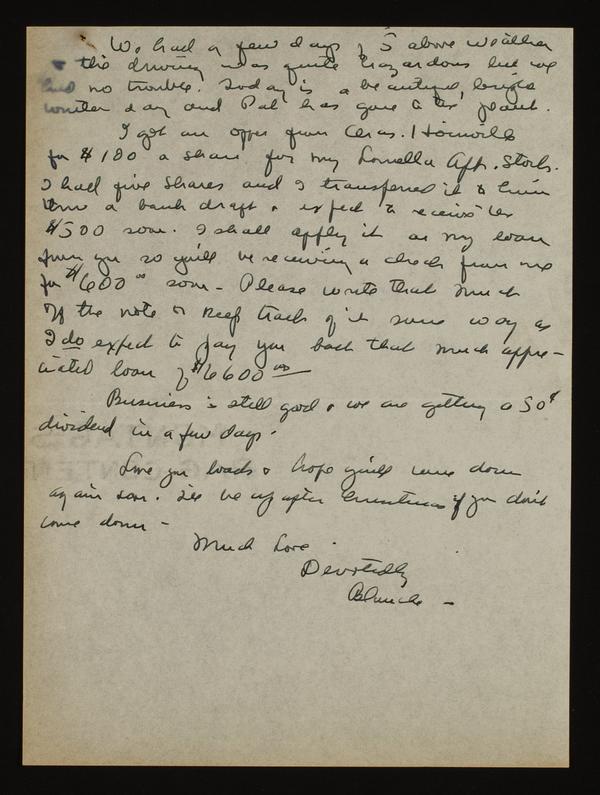 We had a few days of 5 above weather
& the driving was quite hazardous but we
had no trouble. Today is a beautiful, bright
winter day and Pal has gone to the plant.
I got an offer from Chas.
for $100 a share for my Apt. Stock.
I had five shares and I transferred it to him
a bank draft & expect to receive the
$500 soon. I shall apply it on my loan
from you so you'll be receiving a check from me
for $600 00 soon - Please write that much
off the note or keep track of it some way as
I do expect to pay you back that much appre-
ciated loan of $6600 00
Business is still good & we are getting a 50¢
dividend in a few days.
Love you loads & hope you'll come down
again soon. I'll be up after Christmas if you don't
come down -
Much Love
Devotedly
Blanche -